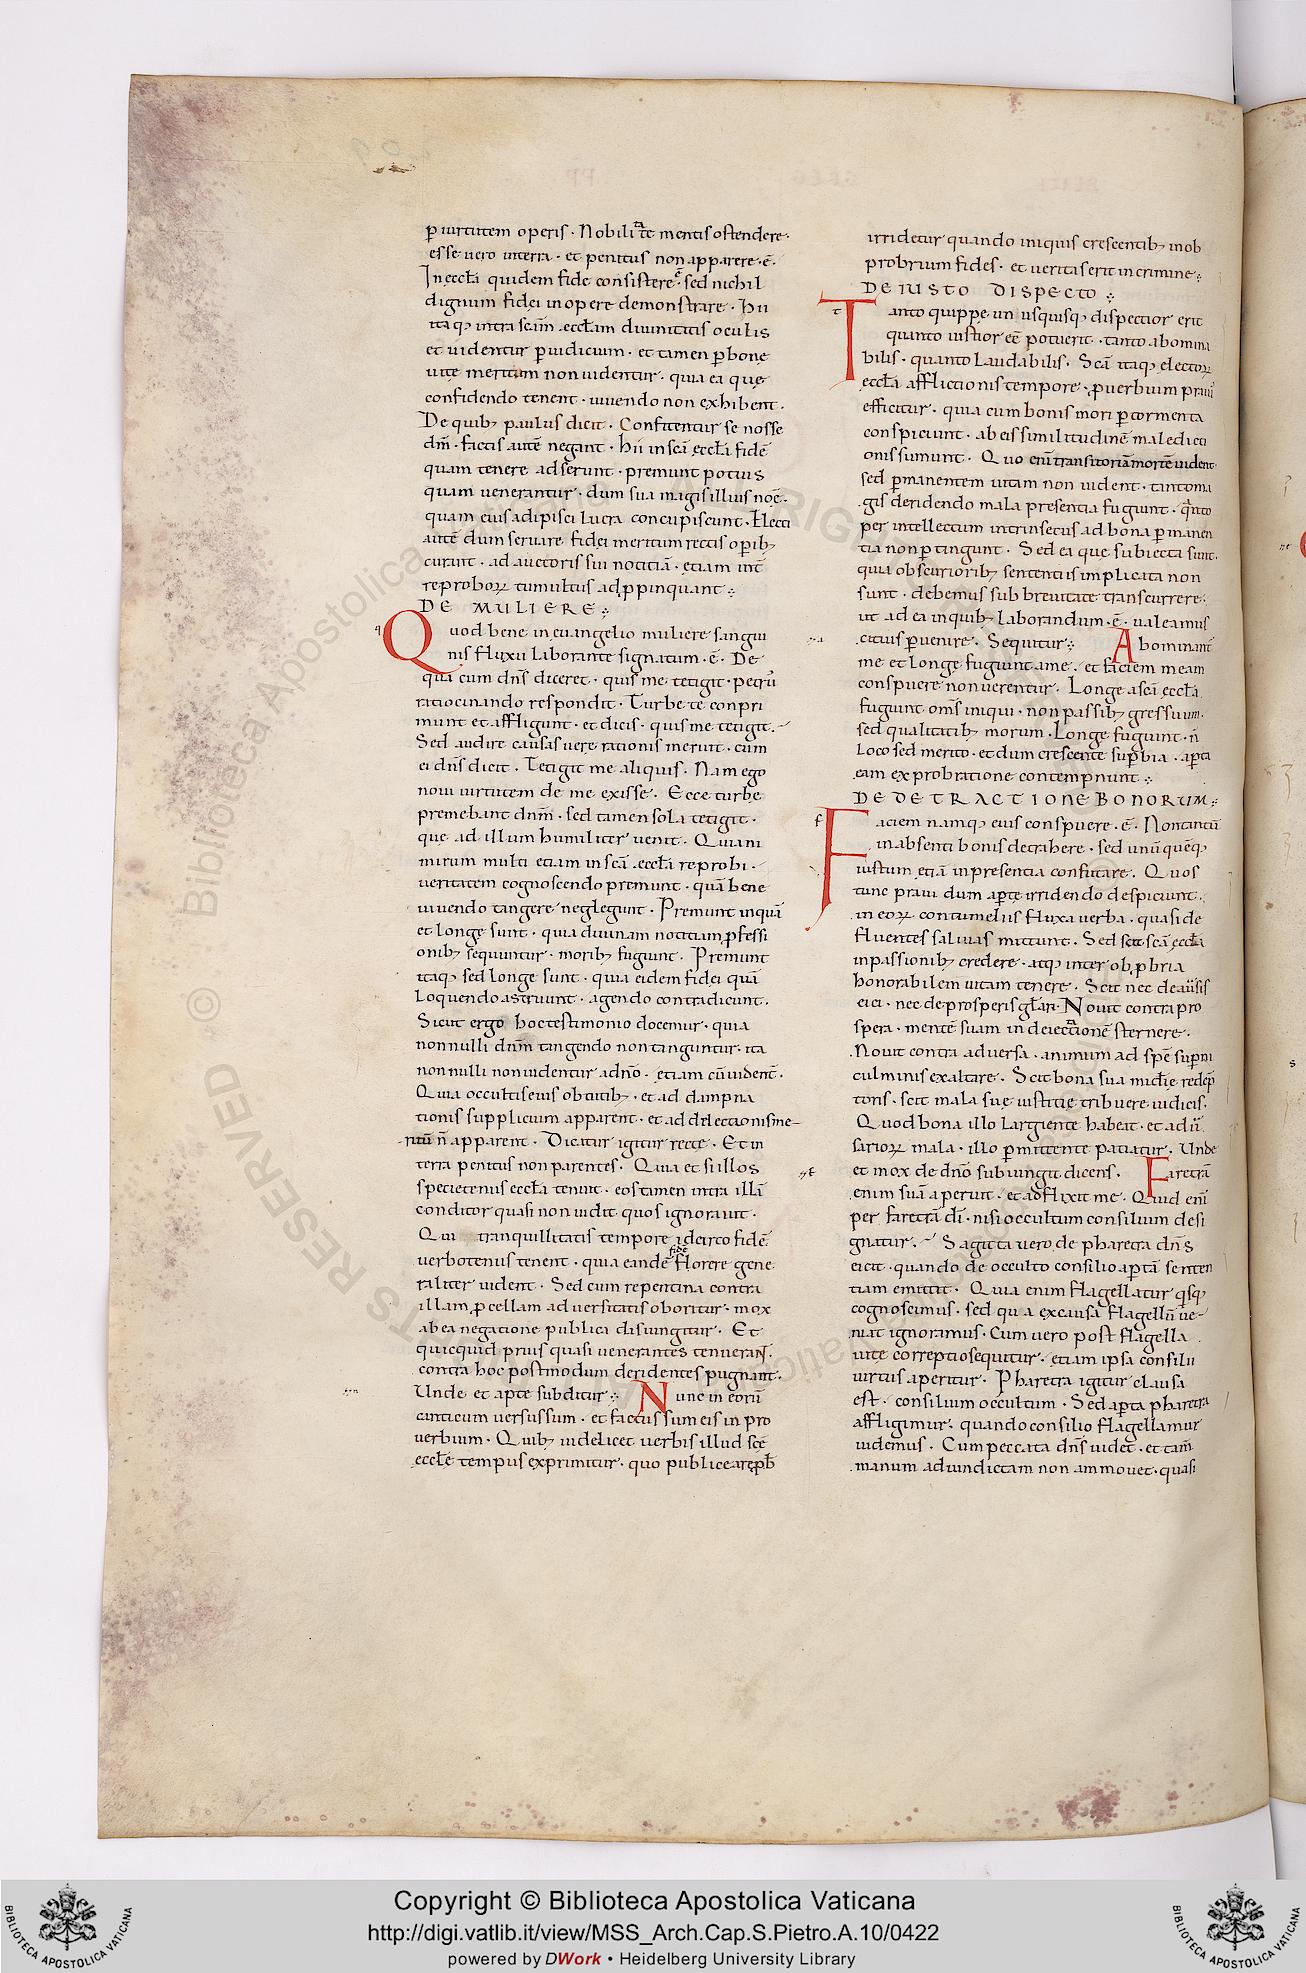 ꝑ uirtutem operis · Nobilitate mentis ostendere ·
esse uero interra · et penitus non apparere · ē ·
In eccła quidem fide consistere ē · sed nichil
dignum fidei in opere demonstrare · Hii
itaq; intra scām eccłam diuinitatis oculis
et uidentur ꝑ iudicium · et tamen ꝑ bonę
uitę meritum non uidentur · quia ea quę
confidendo tenent · uiuendo non exhibent ·
De quib; paulus dicit · Confitentur se nosse
dm̄ · factis autē negant · Hii in scā eccła fidē
quam tenere adserunt · premunt potius
quam uenerantur · dum sua magis illius noē ·
quam eius adipisci lucra concupiscunt · Electi
autē dum seruare fidei meritum rectis oꝑib;
curant · ad auctoris sui notitiā · etiam int̄
reproboꝝ tumultus adꝓpinquant :·
DE MULIERE :·
q Quod bene in euangelio muliere sangui
nis fluxu laborante signatum · ē · De
qua cum dn̄s diceret · quis me tetigit · petrꝰ
ratiocinando respondit · Turbe te conpri
munt et affligunt · et dicis · quis me tetigit ·
Sed audire causas uere rationis meruit · cum
ei dn̄s dicit · Tetigit me aliquis · Nam ego
noui uirtutem de me exisse · Ecce turbe
premebant dnm̄ · sed tamen sola tetigit ·
que ad illum humiliter uenit · Quia ni
mirum multi etiam in scā eccła reprobi ·
ueritatem cognoscendo premunt · quā bene
uiuendo tangere neglegunt · Premunt inquā
et longe sunt · quia diuinam notitiam ꝓfessi
onib; sequuntur · morib; fugiunt · Premunt
itaq; sed longe sunt · quia eidem fidei quā
loquendo astruunt · agendo contradicunt ·
Sicut ergo hoc testimonio docemur · quia
nonnulli dnm̄ tangendo non tanguntur · ita
nonnulli non uidentur adn̄o · etiam cū uident̄ ·
Quia occultis eius obtutib; · et ad dampna
tionis supplicium apparent · et ad dilectionis me-
ritū n̄ apparent · Dicatur igitur recte · Et in
terra penitus non parentes · Quia et si illos
specietenus eccła tenuit · eos tamen intra illā
conditor quasi non uidit quos ignorauit ·
Qui tranquillitatis tempore idcirco fidē
uerbotenus tenent · quia eandē fidē florere gene
raliter uident · Sed cum repentina contra
illam ꝓcellam aduersitatis oboritur · mox
ab ea negatione publica disiungitur · Et
quicquid prius quasi uenerantes tenuerant ·
contra hoc postmodum deridentes pugnant ·
Unde et apte subditur :· Nunc in eorū
canticum uersus sum · et factus sum eis in pro
uerbium · Quib; uidelicet uerbis illud scē
eccłe tempus exprimitur · quo publice a reꝓb
irridetur quando iniquis crescentib; in ob
probrium fides · et ueritas erit in crimine :·
DE IUSTO DISPECTO :·
t Tanto quippe unusquisq; dispectior erit
quanto iustior eē potuerit · tanto abomina
bilis · quanto laudabilis · Scā itaq; electoꝝ
eccła afflictionis tempore · ꝓuerbium prauiꝰ
efficitur · quia cum bonis mori ꝑ tormenta
conspiciunt · ab eis similitudinē maledicti
onis sumunt · Quo enī transitoriā mortē uident
sed ꝑmanentem uitam non uident · tanto ma
gis deridendo mala presentia fugiunt · qͣnto
per intellectum intrinsecus ad bona ꝑmanen
tia non ꝑtingunt · Sed ea que subiecta sunt ·
quia obscuriorib; sententiis implicata non
sunt · debemus sub breuitate transcurrere ·
ut ad ea in quib; laborandum · ē · ualeamus
citius ꝑuenire · Sequitur :· Abominant̄
me et longe fugiunt a me · et faciem meam
conspuere non uerentur · Longe a scā eccła
fugiunt om̄s iniqui · non passib; gressuum ·
sed qualitatib; morum · Longe fugiunt · n̄
loco sed merito · et dum crescente suꝑbia · aꝑta
eam exprobratione contempnunt :·
DE DETRACTIONE BONORUM :·
f Faciem namq; eius conspuere · ē · Non tantū
in absenti bonis detrahere · sed unū quēq;
iustum etiā in presentia confutare · Quos
tunc praui dum aꝑte irridendo despiciunt ·
in eoꝝ contumeliis fluxa uerba · quasi de
fluentes saliuas mittunt · Sed scit scā eccła
in passionib; credere · atq; inter obꝓbria
honorabilem uitam tenere · Scit nec de aduersis
eici · nec de prosperis głari · Nouit contra pro
spera · mentē suam in deiectionē sternere ·
Nouit contra aduersa · animum ad spē suꝑni
culminis exaltare · Scit bona sua mīcdie redēp
toris · scit mala sue iustitie tribuere iudicis ·
Quod bona illo largiente habeat · et adū
sarioꝝ mala · illo ꝑmittente patiatur · Unde
et mox de dn̄o subiungit dicens · Faretrā
enim suā aperuit · et adflixit me · Quid enī
per faretrā dī · nisi occultum consilium desi
gnatur · Sagitta uero de pharetra dn̄s
eicit · quando de occulto consilio aꝑtā senten
tiam emittit · Quia enim flagellatur qͥsq;
cognoscimus · sed qua ex causa flagellū ue-
niat ignoramus · Cum uero post flagella
uite correptio sequitur · etiam ipsa consilii
uirtus aperitur · Pharetra igitur clausa
est · consilium occultum · Sed aꝑta pharetra
affligimur · quando consilio flagellamur
uidemus · Cum peccata dn̄s uidet · et tam̄
manum ad uindictam non ammouet · quasi
Copyright © Biblioteca Apostolica Vaticana
http://digi.vatlib.it/view/MSS_Arch.Cap.S.Pietro.A.10/0422
powered by DWork • Heidelberg University Library